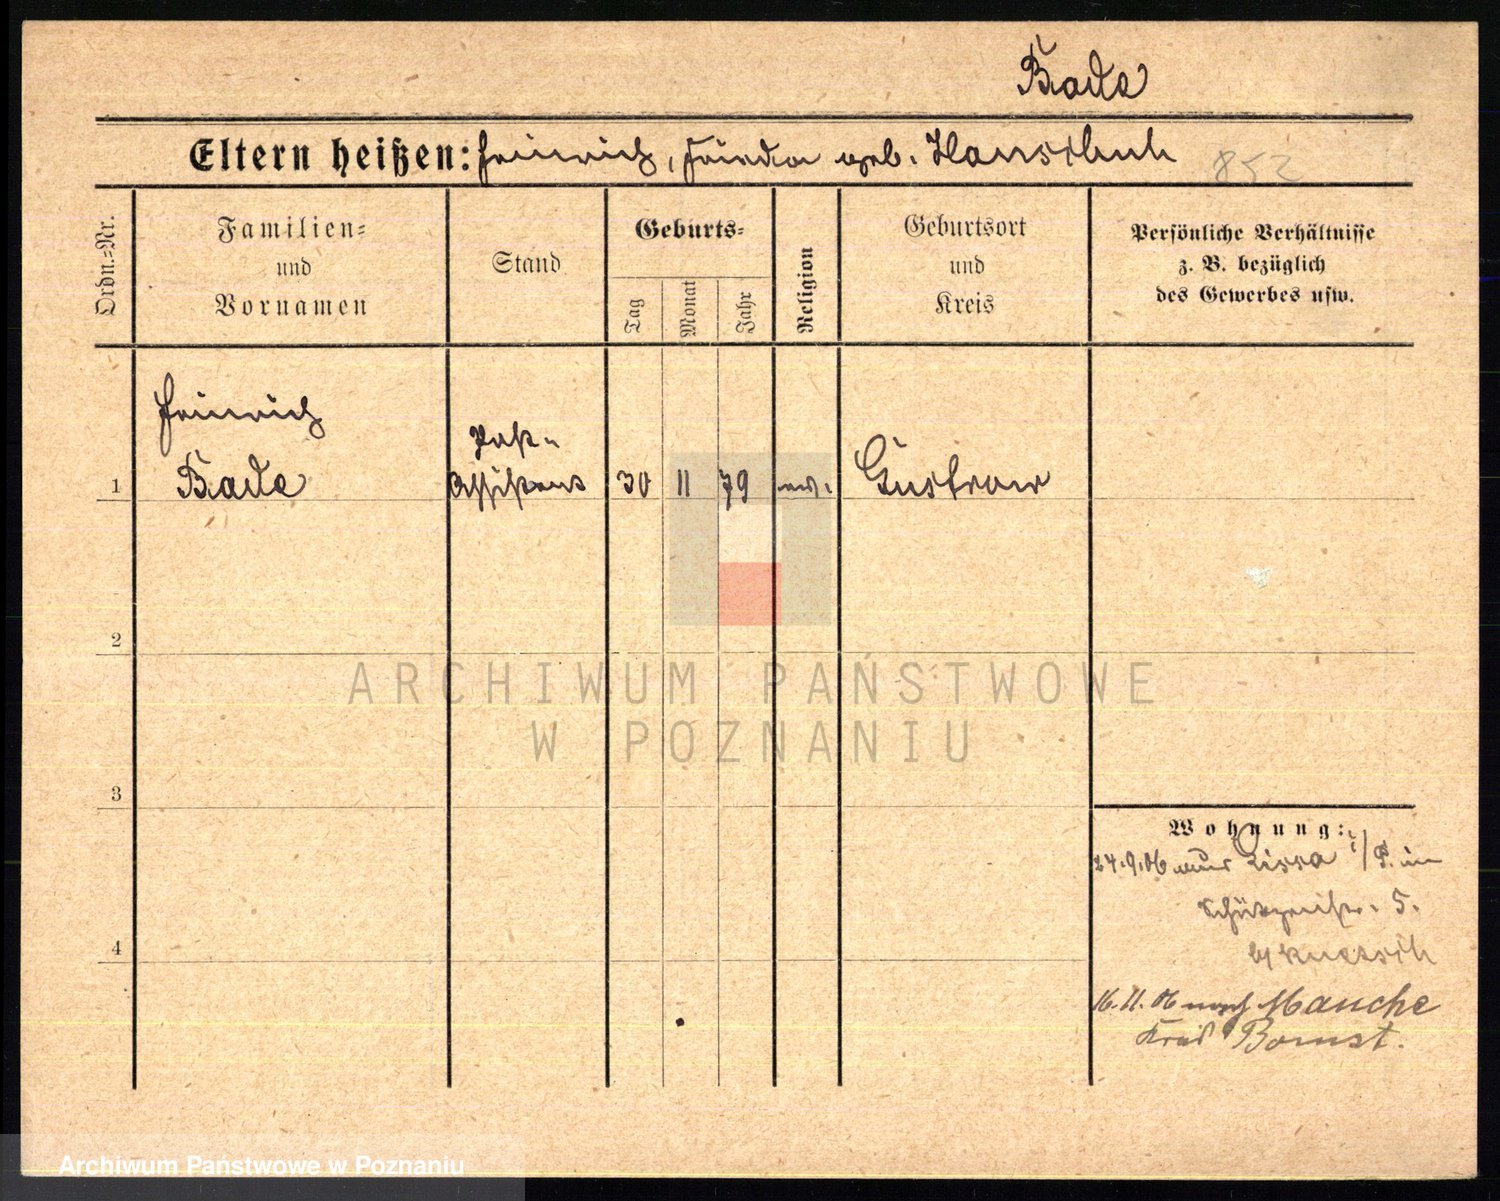 Bade
Eltern heißen: Heinrich, Frieda geb. Hanschuh
852
Ordn.=Nr.
Familien=
und
Vornamen
Stand
Geburts=
Tag
Monat
Jahr
Religion
Geburtsort
und
Kreis
Persönliche Verhältnisse
z. B. bezüglich
des Gewerbes usw.
Heinrich
Bade
Post-
Assistent
1
30 11 79 ev. Güstrow
2
ARCHIWUM PAŃSTWOWE
W POZNANIU
3
Wohnung:
24.9.06 aus Lissa i/P. in
Schützenstr. 5.
b/
4
16.11.06 nach Mauche
Kreis Bomst.
Archiwum Państwowe w Poznaniu